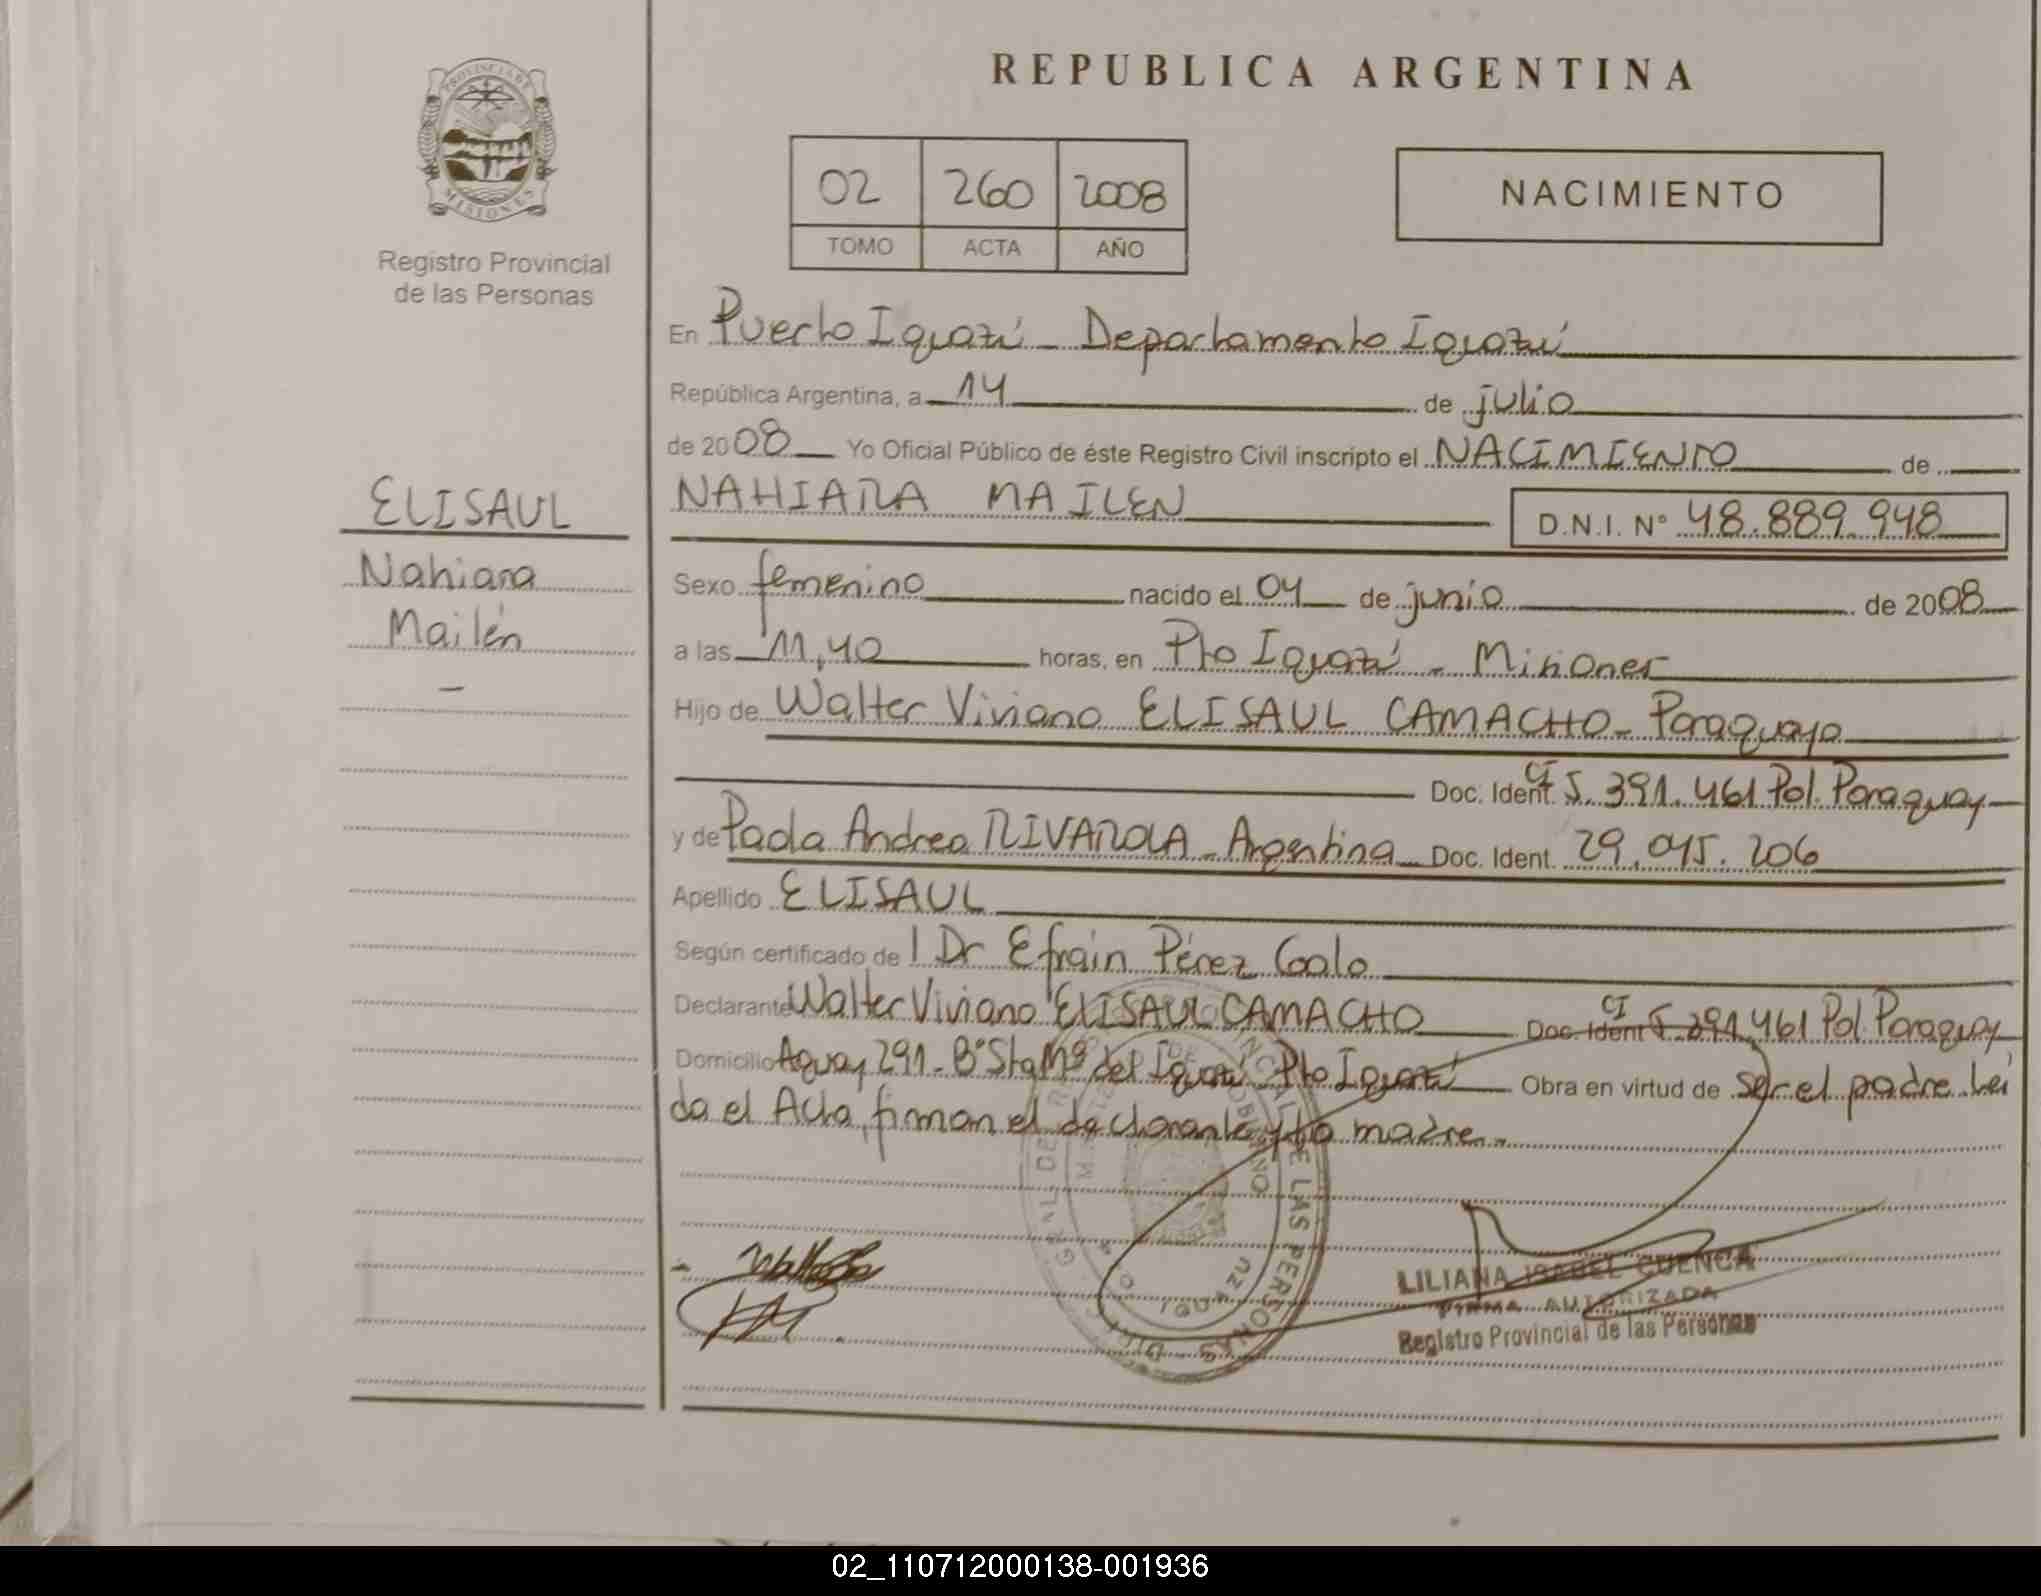 REPUBLICA ARGENTINA
PROVINCIA DE
MISIONES
Registro Provincial
de las Personas
02 260 2008
TOMO ACTA AÑO
NACIMIENTO
En Puerto Iguazú - Departamento Iguazú
República Argentina, a 14 de julio
de 2008 Yo Oficial Público de éste Registro Civil inscripto el NACIMIENTO de
NAHIARA MAILEN D.N.I. Nº 48.889.948
ELISAUL
Nahiara
Mailén
-
Sexo femenino nacido el 04 de junio de 2008
a las 11,40 horas, en Pto Iguazú - Misiones
Hijo de Walter Viviano ELISAUL CAMACHO - Paraguayo
Doc. Ident. CI 5.391.461 Pol. Paraguay
y de Paola Andrea RIVAROLA - Argentina Doc. Ident. 29.045.206
Apellido ELISAUL
Según certificado de l Dr Efraín Pérez Galo
Declarante Walter Viviano ELISAUL CAMACHO Doc. Ident CI 5.391.461 Pol. Paraguay
Domicilio Aguay 291 - Bº Sta Mª del Iguazú Pto Iguazú Obra en virtud de ser el padre. Leí
da el Acta, firman el declarante y la madre.
LILIANA ISABEL CUENCA
FIRMA AUTORIZADA
Registro Provincial de las Personas
02_110712000138-001936